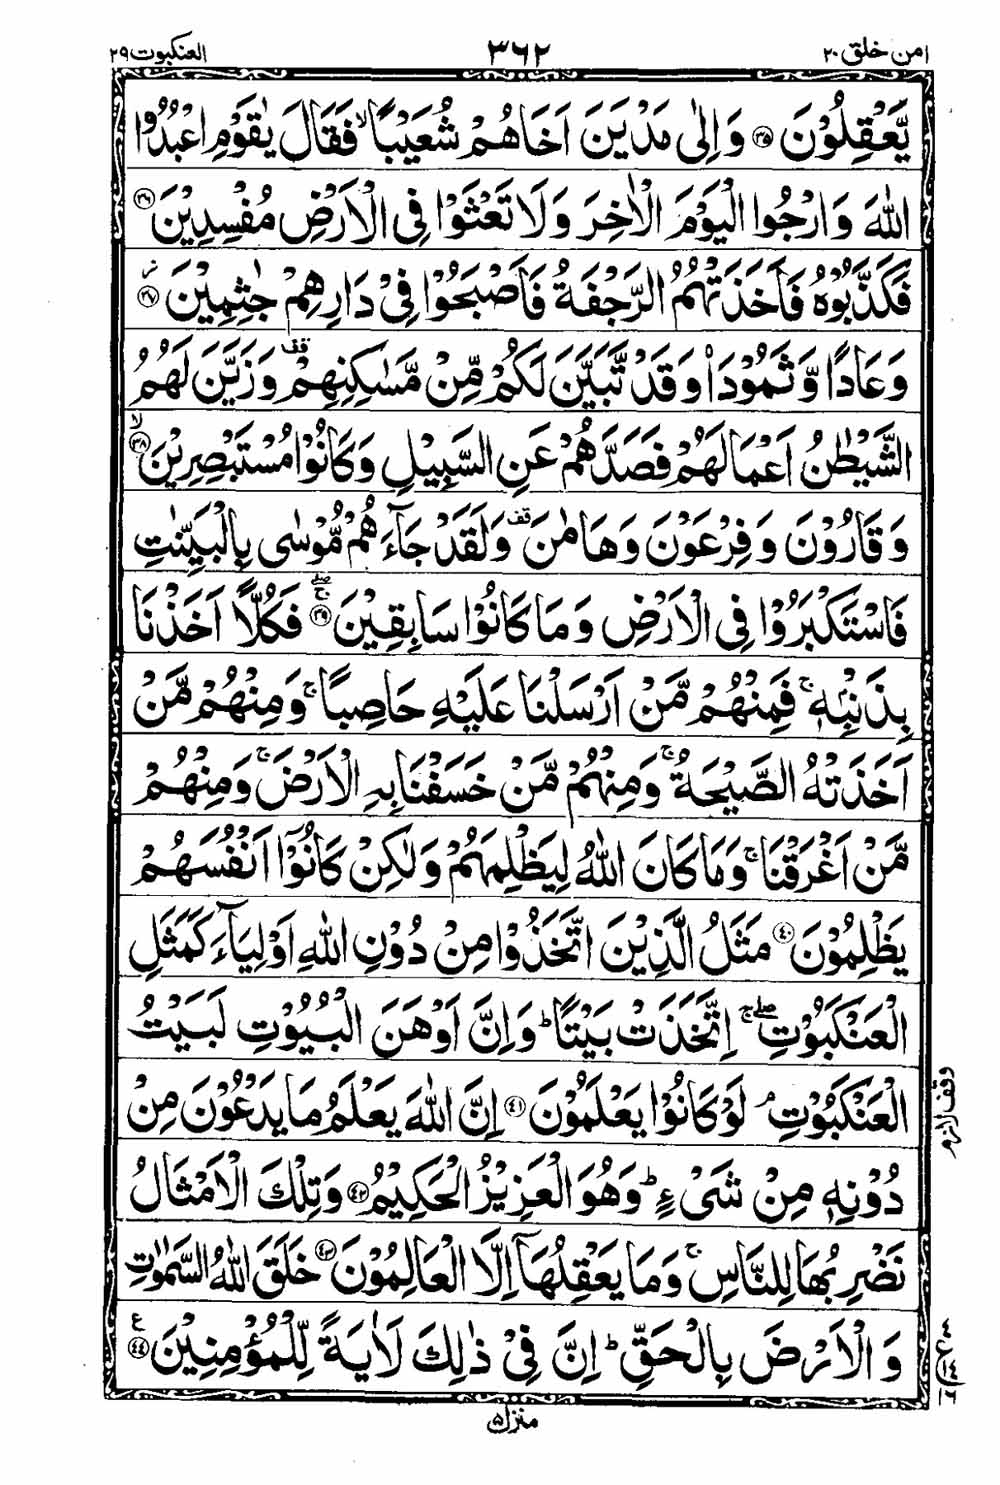 امن خلق ٢٠ ٣٦٢ العنكبوت ٢٩
يَّعْقِلُوْنَ ۝٣٥ وَاِلٰى مَدْيَنَ اَخَاهُمْ شُعَيْبًا ۙ فَقَالَ يٰقَوْمِ اعْبُدُوا
اللّٰهَ وَارْجُوا الْيَوْمَ الْاٰخِرَ وَلَا تَعْثَوْا فِى الْاَرْضِ مُفْسِدِيْنَ ۝٣٦
فَكَذَّبُوْهُ فَاَخَذَتْهُمُ الرَّجْفَةُ فَاَصْبَحُوْا فِىْ دَارِهِمْ جٰثِمِيْنَ ۝٣٧ ز
وَعَادًا وَّثَمُوْدَا۟ وَقَدْ تَّبَيَّنَ لَكُمْ مِّنْ مَّسٰكِنِهِمْ قف وَزَيَّنَ لَهُمُ
الشَّيْطٰنُ اَعْمَالَهُمْ فَصَدَّهُمْ عَنِ السَّبِيْلِ وَكَانُوْا مُسْتَبْصِرِيْنَ ۝٣٨ ۙ
وَقَارُوْنَ وَفِرْعَوْنَ وَهَامٰنَ قف وَلَقَدْ جَآءَهُمْ مُّوْسٰى بِالْبَيِّنٰتِ
فَاسْتَكْبَرُوْا فِى الْاَرْضِ وَمَا كَانُوْا سَابِقِيْنَ ۝٣٩ صلے ج فَكُلًّا اَخَذْنَا
بِذَنْۢبِهٖ ۚ فَمِنْهُمْ مَّنْ اَرْسَلْنَا عَلَيْهِ حَاصِبًا ۚ وَمِنْهُمْ مَّنْ
اَخَذَتْهُ الصَّيْحَةُ ۚ وَمِنْهُمْ مَّنْ خَسَفْنَا بِهِ الْاَرْضَ ۚ وَمِنْهُمْ
مَّنْ اَغْرَقْنَا ۚ وَمَا كَانَ اللّٰهُ لِيَظْلِمَهُمْ وَلٰكِنْ كَانُوْۤا اَنْفُسَهُمْ
يَظْلِمُوْنَ ۝٤٠ مَثَلُ الَّذِيْنَ اتَّخَذُوْا مِنْ دُوْنِ اللّٰهِ اَوْلِيَآءَ كَمَثَلِ
الْعَنْكَبُوْتِ صلے ج اِتَّخَذَتْ بَيْتًا ؕ وَاِنَّ اَوْهَنَ الْبُيُوْتِ لَبَيْتُ
الْعَنْكَبُوْتِ ۘ لَوْ كَانُوْا يَعْلَمُوْنَ ۝٤١ اِنَّ اللّٰهَ يَعْلَمُ مَا يَدْعُوْنَ مِنْ
وقف لازم
دُوْنِهٖ مِنْ شَىْءٍ ؕ وَهُوَ الْعَزِيْزُ الْحَكِيْمُ ۝٤٢ وَتِلْكَ الْاَمْثَالُ
نَضْرِبُهَا لِلنَّاسِ ۚ وَمَا يَعْقِلُهَاۤ اِلَّا الْعَالِمُوْنَ ۝٤٣ خَلَقَ اللّٰهُ السَّمٰوٰتِ
وَالْاَرْضَ بِالْحَقِّ ؕ اِنَّ فِىْ ذٰلِكَ لَاٰيَةً لِّلْمُؤْمِنِيْنَ ۝٤٤ ع
منزل ٥